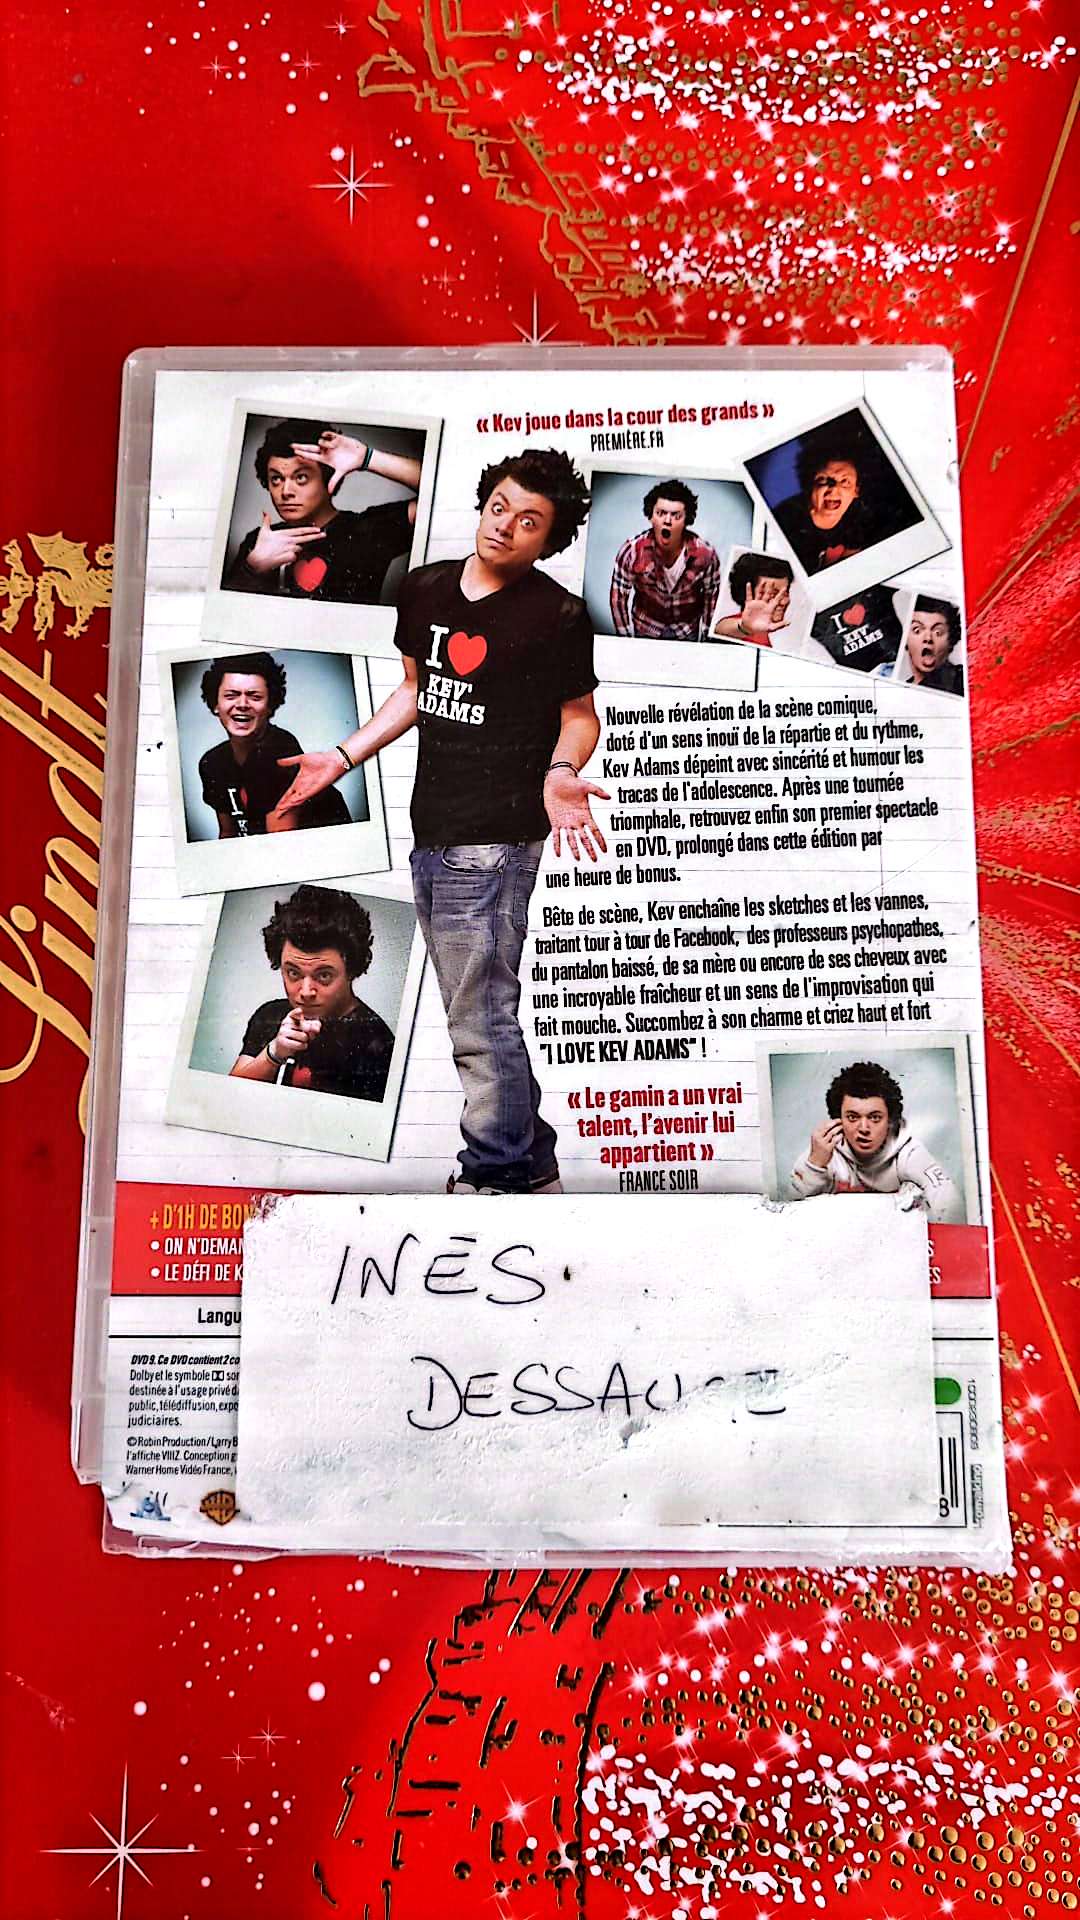 « Kev joue dans la cour des grands »
PREMIÈRE.FR
I
KEV'
ADAMS
I
KEV'
ADAMS
I
Lindt
Nouvelle révélation de la scène comique,
doté d'un sens inouï de la répartie et du rythme,
Kev Adams dépeint avec sincérité et humour les
tracas de l'adolescence. Après une tournée
triomphale, retrouvez enfin son premier spectacle
en DVD, prolongé dans cette édition par
une heure de bonus.
Bête de scène, Kev enchaîne les sketches et les vannes,
traitant tour à tour de Facebook, des professeurs psychopathes,
du pantalon baissé, de sa mère ou encore de ses cheveux avec
une incroyable fraîcheur et un sens de l'improvisation qui
fait mouche. Succombez à son charme et criez haut et fort
"I LOVE KEV ADAMS" !
« Le gamin a un vrai
talent, l'avenir lui
appartient »
FRANCE SOIR
+ D'1H DE BON
• ON N'DEMAN
• LE DÉFI DE K
S
ES
INÈS.
Langu
DVD 9. Ce DVD contient 2 co
Dolby et le symbole sor
destinée à l'usage privé d
public, télédiffusion, expo
judiciaires.
© Robin Production / Larry B
l'affiche VIIIZ. Conception g
Warner Home Vidéo France,
WB
8